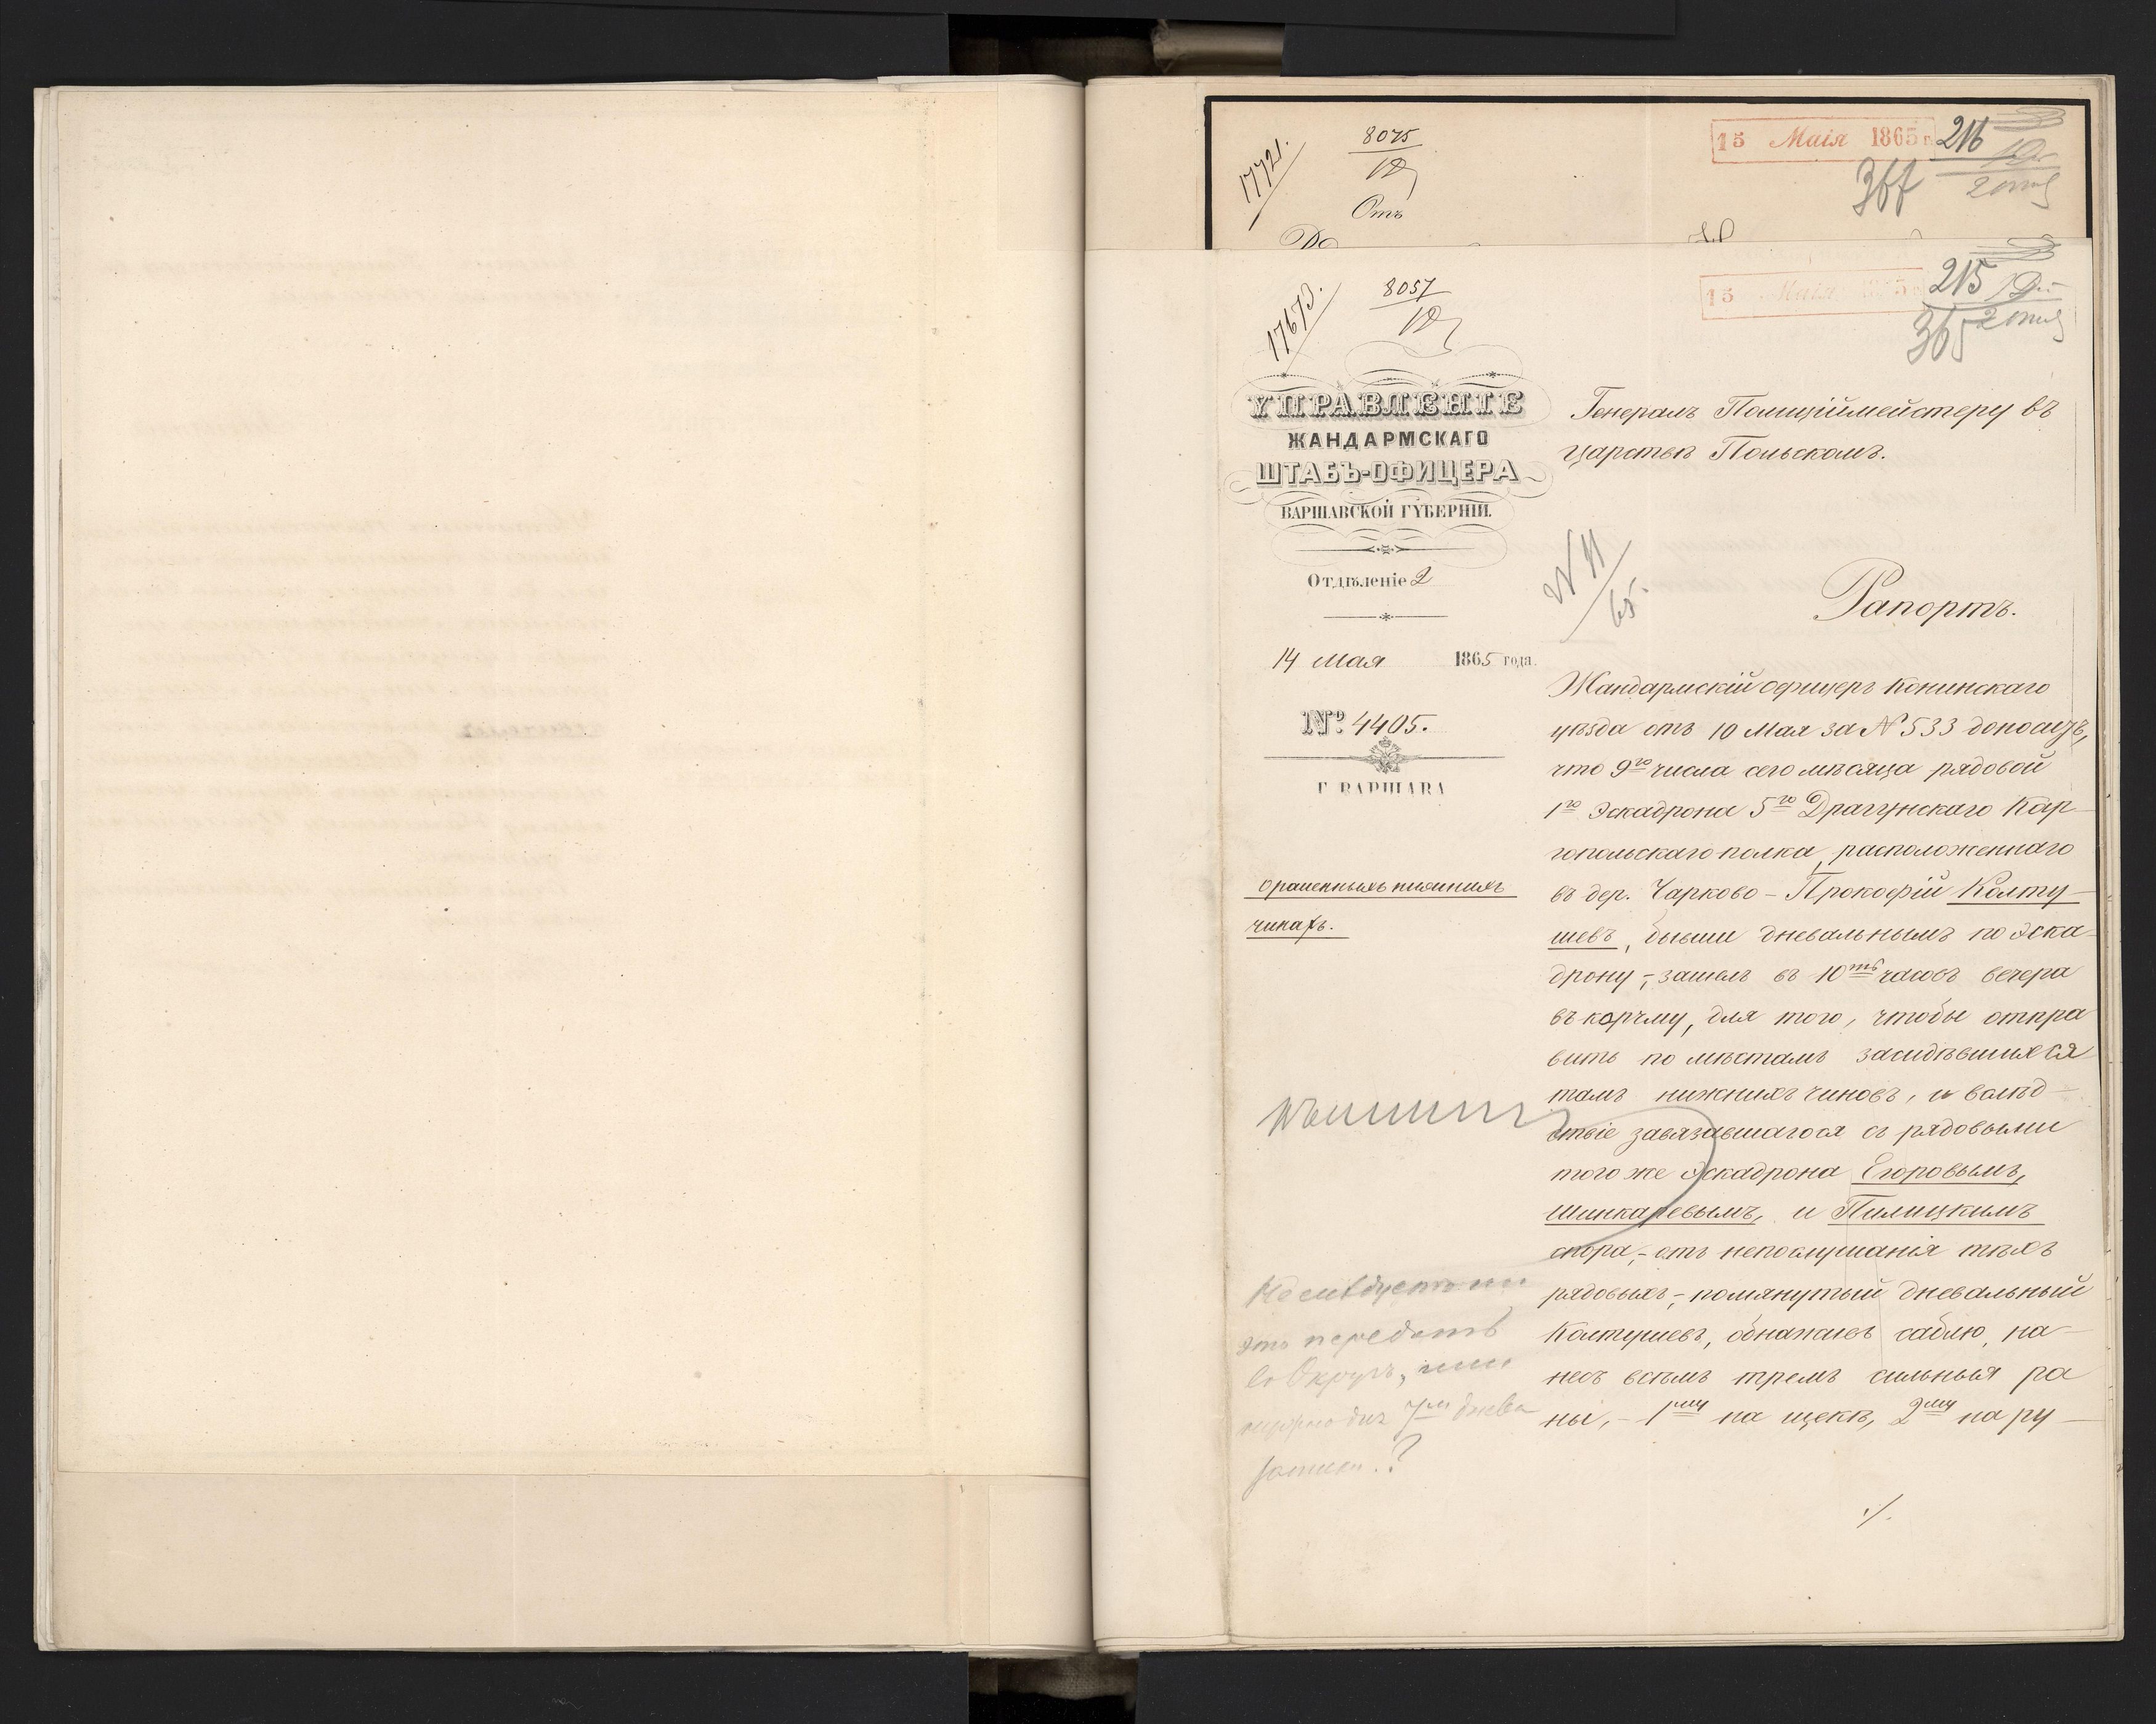 17721.
8075
Отъ
15 Маія 1865 г.
216
17673.
8057
15 Маія
215
365
УПРАВЛЕНІЕ
ЖАНДАРМСКАГО
ШТАБЪ-ОФИЦЕРА
ВАРШАВСКОЙ ГУБЕРНІИ.
Отдѣленіе 2
14 Мая 1865 года.
№ 4405.
Г. ВАРШАВА
о раненныхъ нижнихъ
чинахъ.
Не слѣдуетъ ли
это передать
въ Округъ, или
N 11/65.
Генералъ Полиціймейстеру въ
Царствѣ Польскомъ.
Рапортъ.
Жандармскій офицеръ Конинскаго
уѣзда отъ 10 Мая за № 533 доноситъ,
что 9го числа сего мѣсяца рядовой
1го Эскадрона 5го Драгунскаго Кар
гопольскаго полка, расположеннаго
въ дер. Чарково - Прокофій Колту-
шевъ, бывши дневальнымъ по эска-
дрону, - зашелъ въ 10ть часовъ вечера
въ корчму, для того, чтобы отпра
вить по мѣстамъ засидѣвшихся
тамъ нижнихъ чиновъ, и вслѣд-
ствіе завязавшагося съ рядовыми
того же эскадрона Егоровымъ,
Шинкаревымъ, и Пилицкимъ
спора, - отъ непослушанія тѣхъ
рядовыхъ, - помянутый дневальный
Колтушевъ, обнаживъ саблю, на-
несъ всѣмъ тремъ сильныя ра
ны, - 1му на щекѣ, 2му на ру-
./.